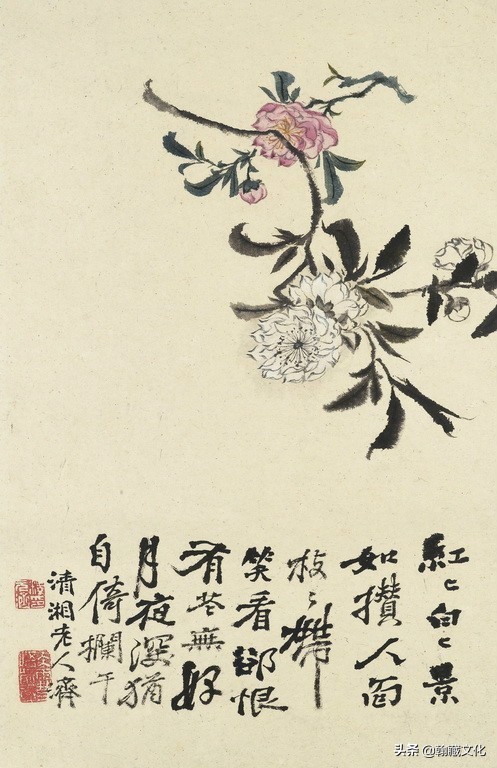 紅〻白〻景
如攢人面
枝〻帶
笑看卻恨
有花無好
月夜深猶
自倚欄干
清湘老人濟
头条 @翰藏文化